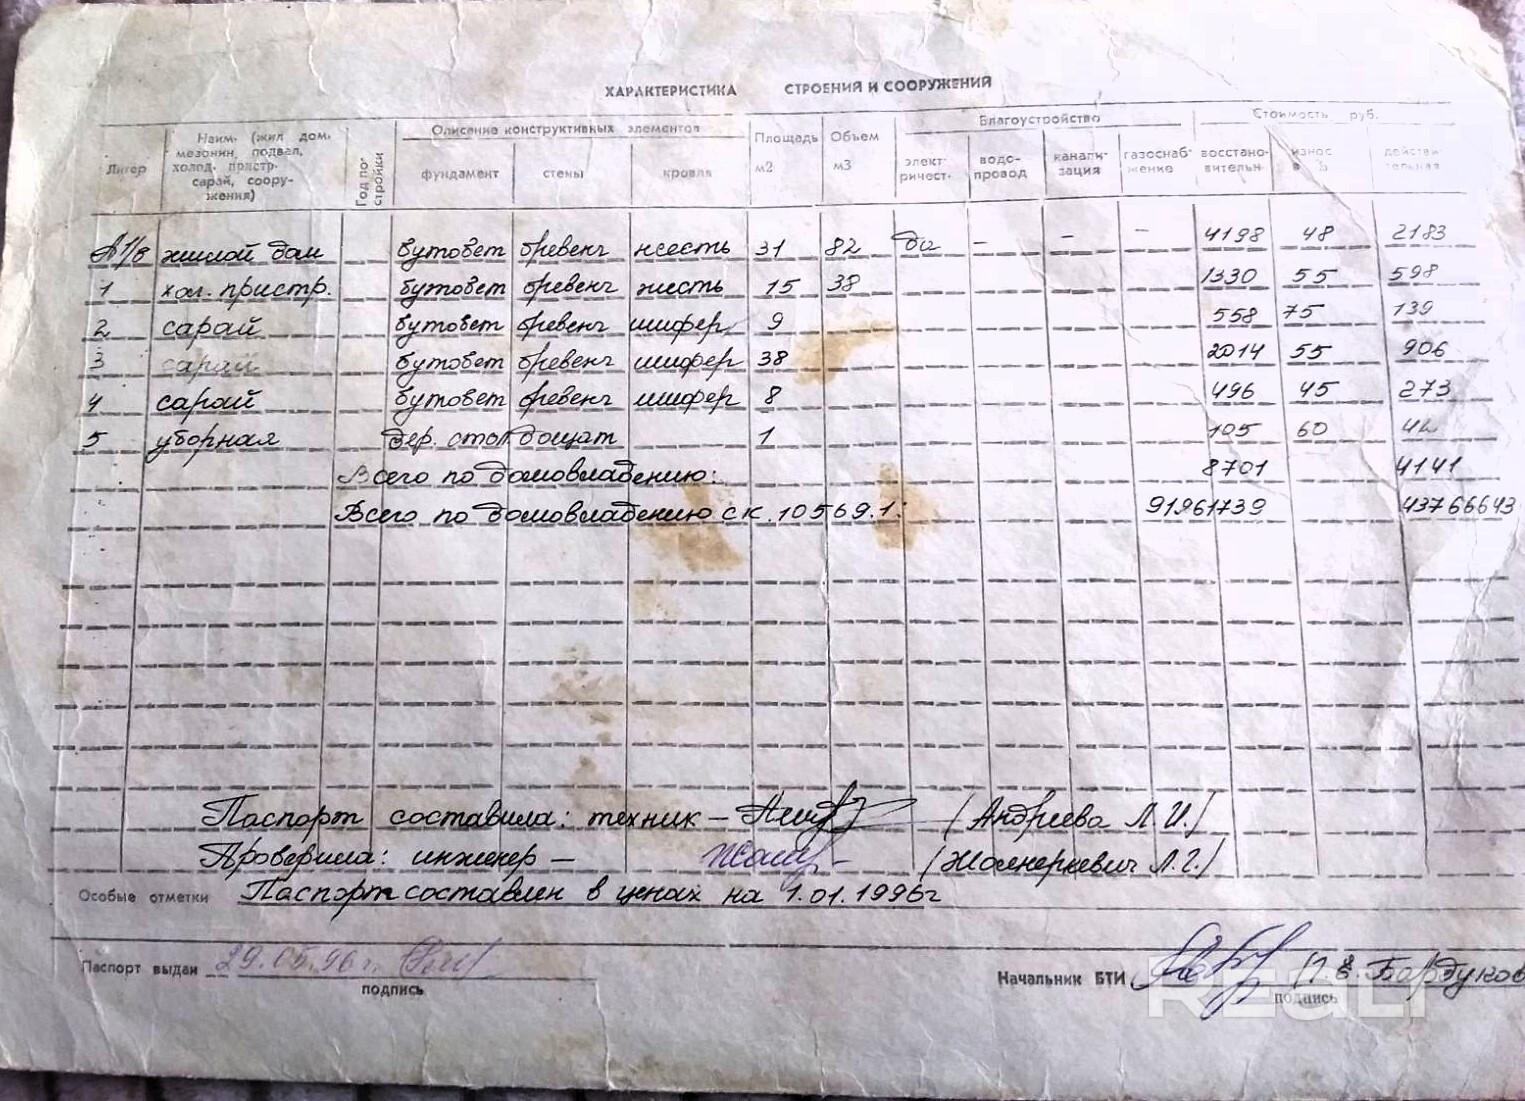 ХАРАКТЕРИСТИКА СТРОЕНИЙ И СООРУЖЕНИЙ
Литер Наим. (жил дом, мезонин, подвал, холод. пристр. сарай, сооружения) Год постройки Описание конструктивных элементов Площадь м2 Объем м3 Благоустройство Стоимость руб.
фундамент стены кровля электричест. водопровод канализация газоснабжение восстановительн износ в % действительная
А1/в жилой дом бутобет бревенч жесть 31 82 да – – – 4198 48 2183
1 хол. пристр. бутобет бревенч жесть 15 38 1330 55 598
2 сарай бутобет бревенч шифер 9 558 75 139
3 сарай бутобет бревенч шифер 38 2014 55 906
4 сарай бутобет бревенч шифер 8 496 45 273
5 уборная дер. стол дощат 1 105 60 42
Всего по домовладению: 8701 4141
Всего по домовладению с к. 10569.1: 91961739 43766643
Паспорт составила: техник – (Андреева Л.И.)
Проверила: инженер – (Жолнеркевич Л.Г.)
Особые отметки Паспорт составлен в ценах на 1.01.1996г
Паспорт выдан 29.05.96г.
подпись
Начальник БТИ
подпись
REGLI